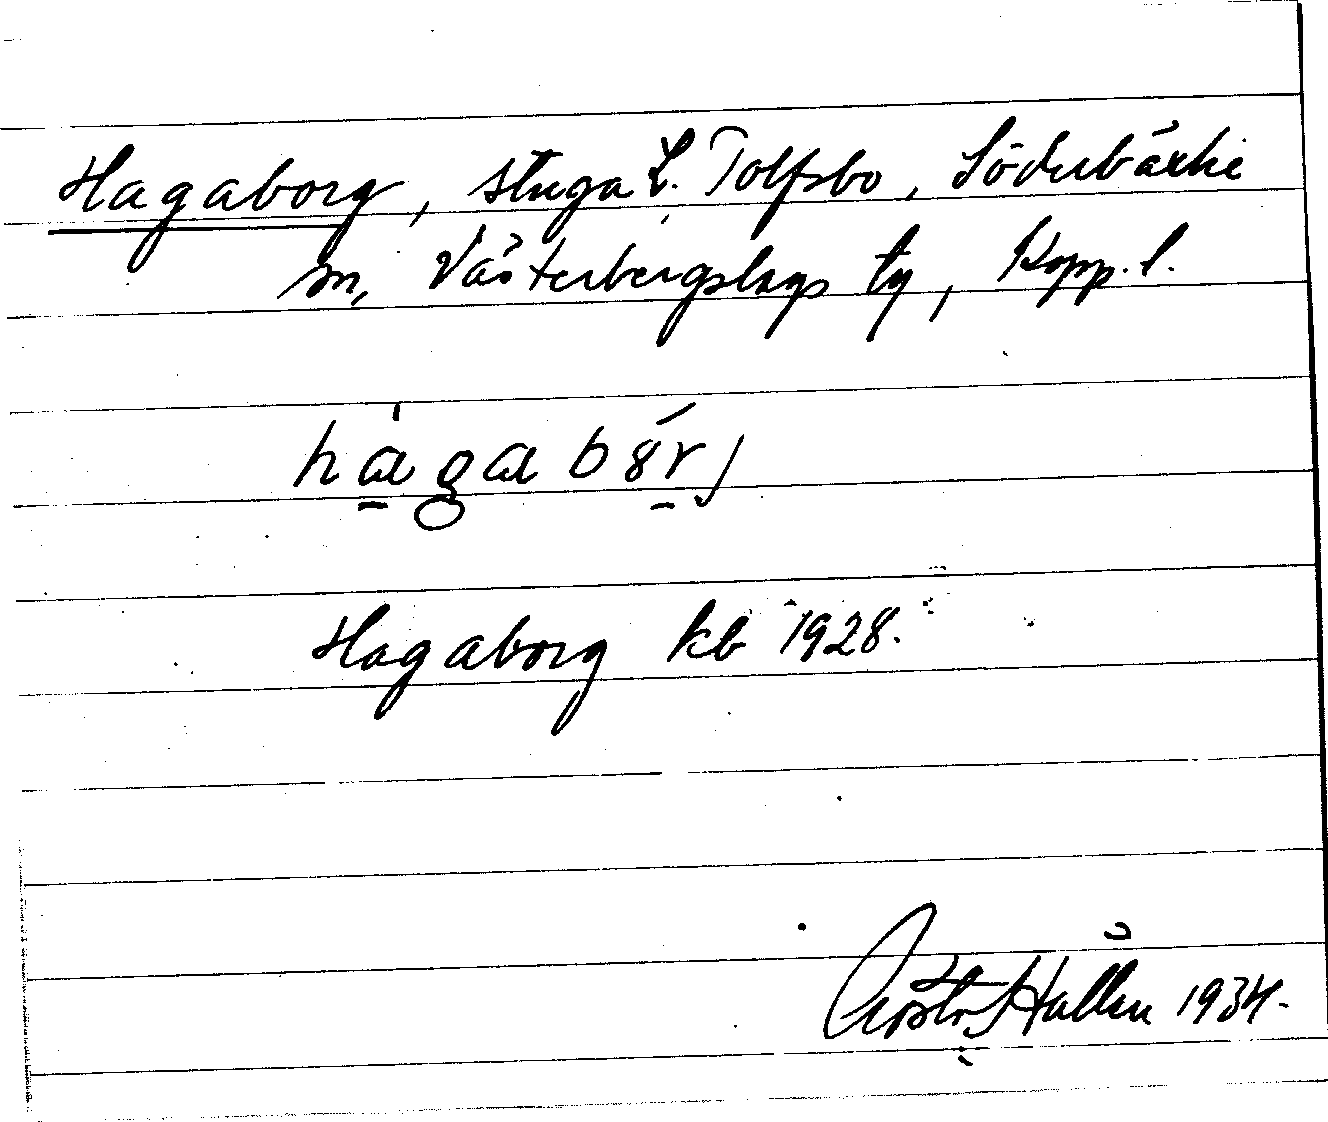 Hagaborg, stuga L. Tolfsbo, Söderbärke
sn, Västerbergslags tg, Kopp. l.
hagabȣrj
Hagaborg kb 1928.
Gösta Hallén 1934.